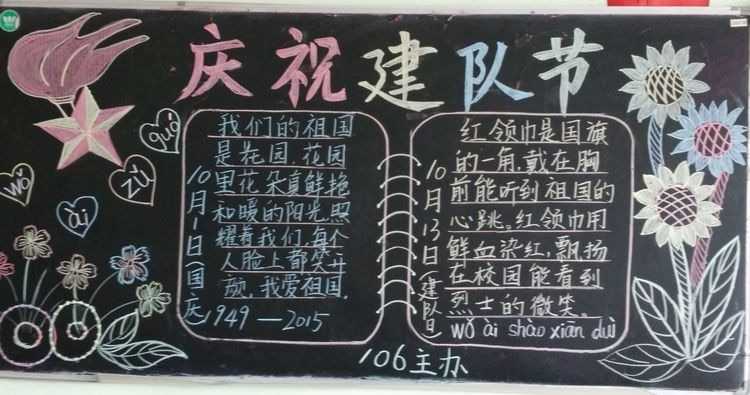 庆祝建队节
wǒ
ài
zǔ
guó
10月1日(国庆
我们的祖国
是花园,花园
里花朵真鲜艳
和暖的阳光照
耀着我们,每个
人脸上都笑开
颜,我爱祖国.
1949—2015
10月13日(建队日
红领巾是国旗
的一角,戴在胸
前能听到祖国的
心跳。红领巾用
鲜血染红,飘扬
在校园能看到
烈士的微笑。
wǒ ài shào xiān duì
106主办